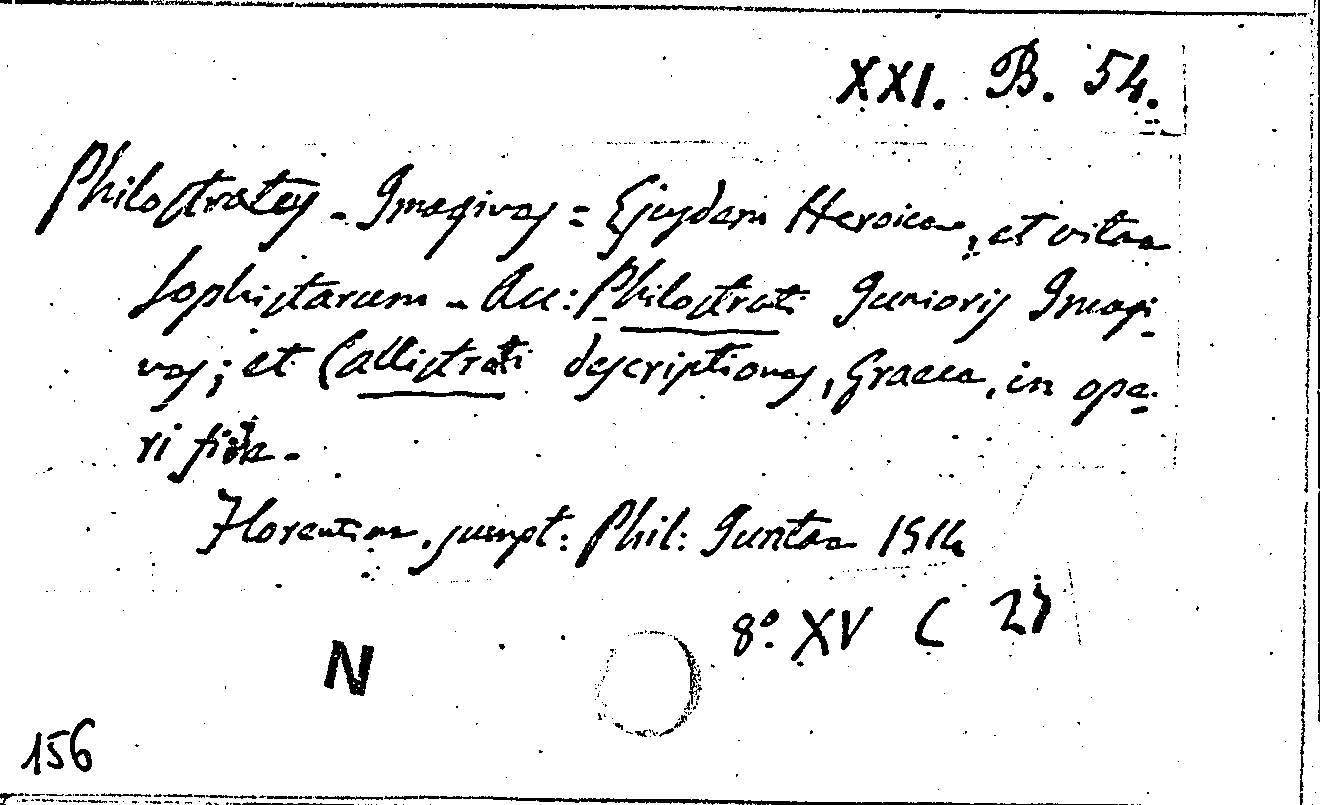 XXI. B. 54.
Philostratus - Imagines = Ejusdem Heroica, et vitae
Sophistarum - Acc: Philostrati Junioris Imagi-
nes; et Callistrati descriptiones, Graece, in ope-
ri
Florentiae. sumpt: Phil: Juntae 1514
8.° XV C 27
N
156